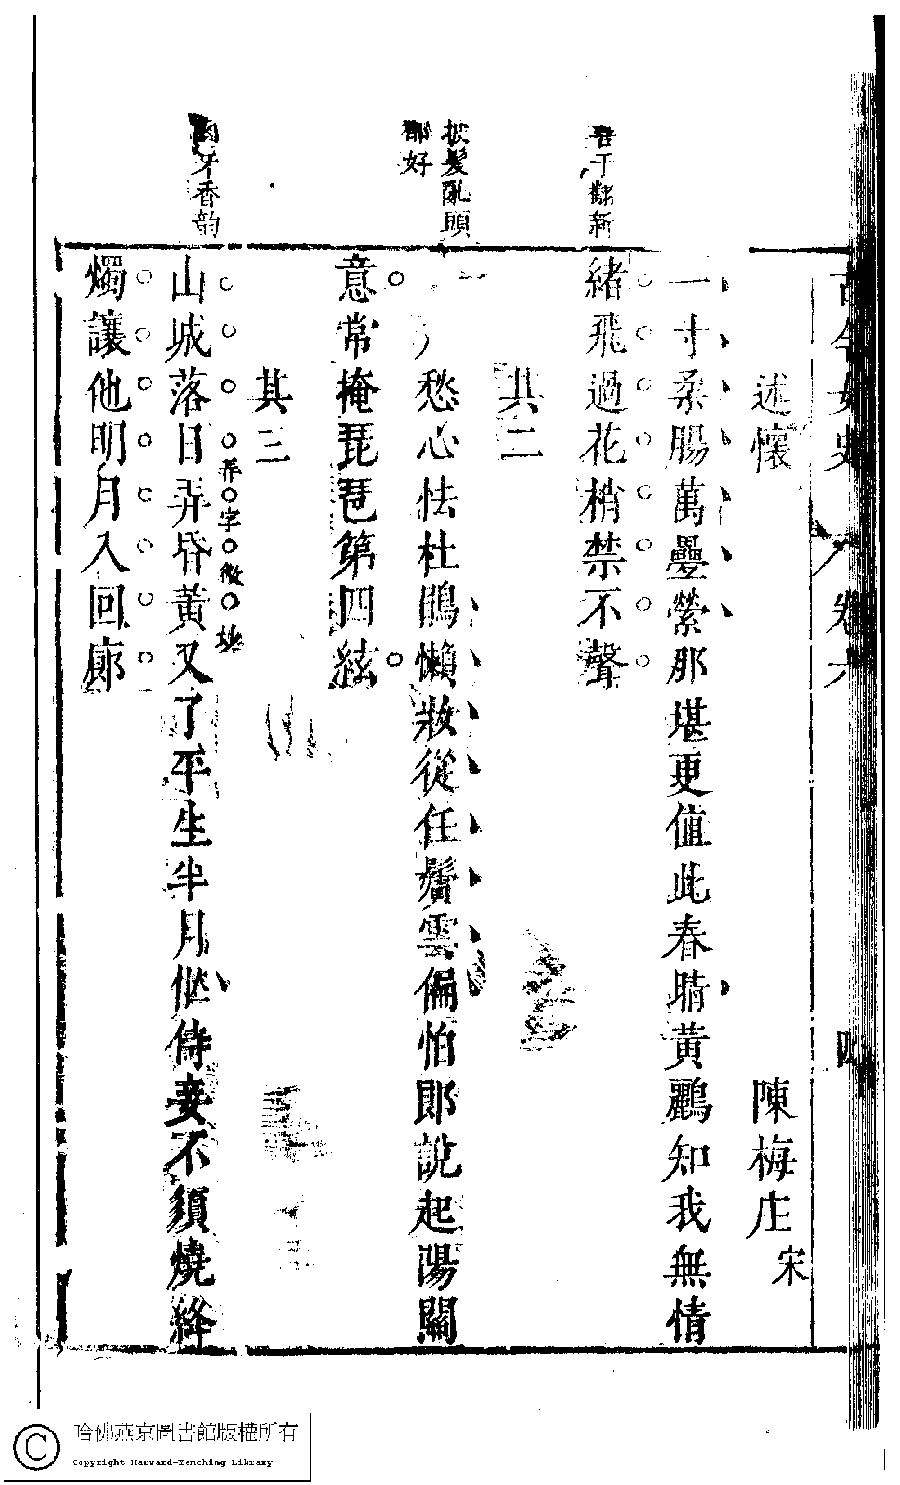 古今女史 卷六
述懷 陳梅庄 宋
一寸柔腸萬疊縈那堪更值此春晴黃鸝知我無情
緒飛過花梢禁不聲
其二
愁心怯杜鵑懶妝從任鬢雲偏怕郎說起陽關
意常掩琵琶第四絃
其三
山城落日弄昏黃又了平生半月忙侍妾不須燒絳
弄字微妙
燭讓他明月入回廊
翻新
披髮亂頭
都好
牙香韵
哈佛燕京圖書館版權所有
Copyright Harvard-Yenching Library